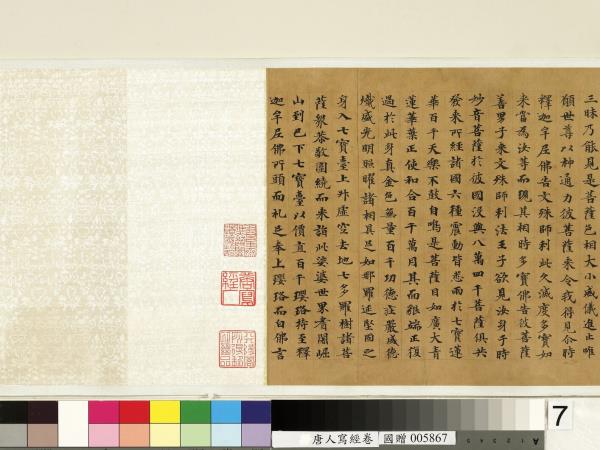 三昧乃能見是菩薩色相大小威儀進止唯
願世尊以神通力彼菩薩來令我得見尒時
釋迦牟尼佛告文殊師利此久滅度多寶如
來當為汝等而現其相時多寶佛告彼菩薩
善男子來文殊師利法王子欲見汝身于時
妙音菩薩於彼國沒與八萬四千菩薩俱共
發來所經諸國六種震動皆悉雨於七寶蓮
華百千天樂不鼓自鳴是菩薩目如廣大青
蓮華葉正使和合百千萬月其面貌端正復
過於此身真金色無量百千功德莊嚴威德
熾盛光明照曜諸相具足如那羅延堅固之
身入七寶臺上昇虛空去地七多羅樹諸菩
薩眾恭敬圍繞而來詣此娑婆世界耆闍崛
山到已下七寶臺以價直百千瓔珞持至釋
迦牟尼佛所頭面礼足奉上瓔珞而白佛言
7
唐人寫經卷 國贈 005867